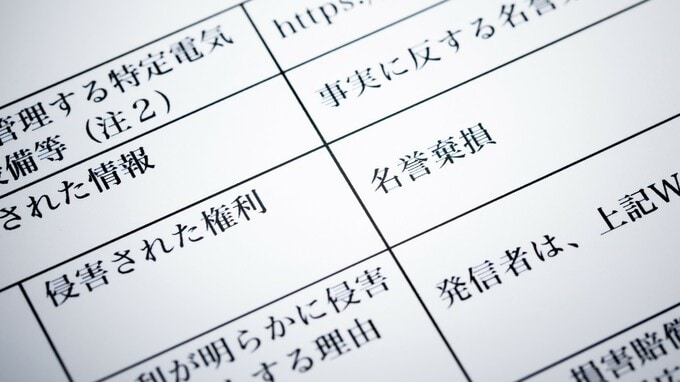 https:/
管理する特定電気
設備等（注２）
事実に反する名誉
された情報
名誉棄損
侵害された権利
発信者は、上記W
利が明らかに侵害
する理由
損害賠償